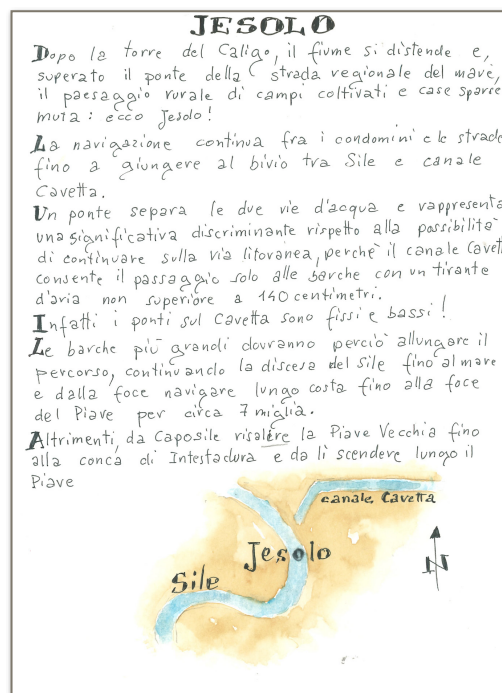 JESOLO
Dopo la torre del Caligo, il fiume si distende e,
superato il ponte della strada regionale del mare,
il paesaggio rurale di campi coltivati e case sparse
muta: ecco Jesolo!
La navigazione continua fra i condomini e le strade
fino a giungere al bivio tra Sile e canale
Cavetta.
Un ponte separa le due vie d'acqua e rappresenta
una significativa discriminante rispetto alla possibilità
di continuare sulla via litoranea, perché il canale Cavett
consente il passaggio solo alle barche con un tirante
d'aria non superiore a 140 centimetri.
Infatti i ponti sul Cavetta sono fissi e bassi!
Le barche più grandi dovranno perciò allungare il
percorso, continuando la discesa del Sile fino al mare
e dalla foce navigare lungo costa fino alla foce
del Piave per circa 7 miglia.
Altrimenti, da Caposile risalire la Piave Vecchia fino
alla conca di Intestadura e da lì scendere lungo il
Piave
canale Cavetta
Jesolo
Sile
N